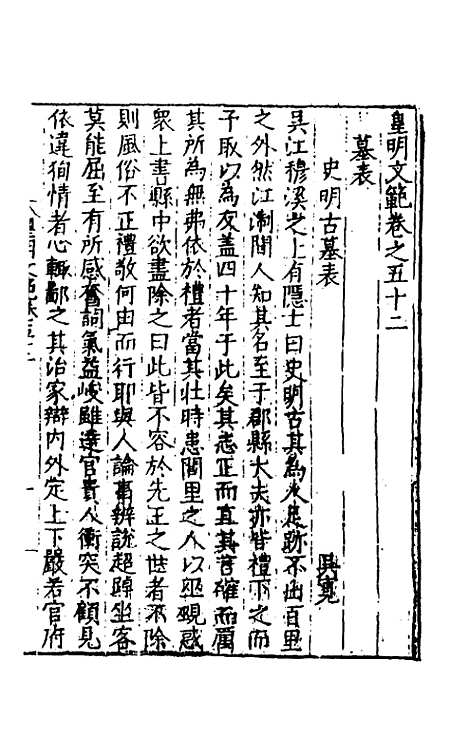 皇明文範卷之五十二
墓表
史明古墓表
吳寬
吳江穆溪之上有隱士曰史明古其為人足跡不出百里
之外然江淛間人知其名至于郡縣大夫亦皆禮下之而
予取以為友蓋四十年于此矣其志正而直其言確而厲
其所為無弗依於禮者當其壯時患閭里之人以巫覡惑
衆上書縣中欲盡除之曰此皆不容於先王之世者不除
則風俗不正禮敬何由而行耶與人論事辨說超踔坐客
莫能屈至有所感奮詞氣益峻雖達官貴人衝突不顧見
依違狥情者心輒鄙之其治家辯内外定上下嚴若官府